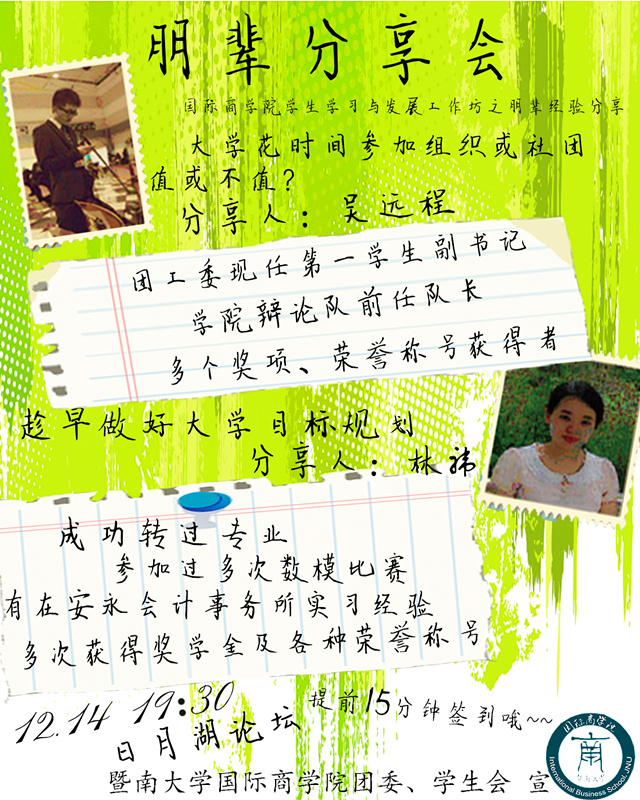 朋辈分享会
国际商学院学生学习与发展工作坊之朋辈经验分享
大学花时间参加组织或社团
值或不值?
分享人：吴远程
团工委现任第一学生副书记
学院辩论队前任队长
多个奖项、荣誉称号获得者
趁早做好大学目标规划
分享人：林祎
成功转过专业
参加过多次数模比赛
有在安永会计事务所实习经验
多次获得奖学金及各种荣誉称号
12.14 19:30
提前15分钟签到哦~~
日月湖论坛
暨南大学国际商学院团委、学生会 宣
国际商学院
暨南大学
International Business School, JNU